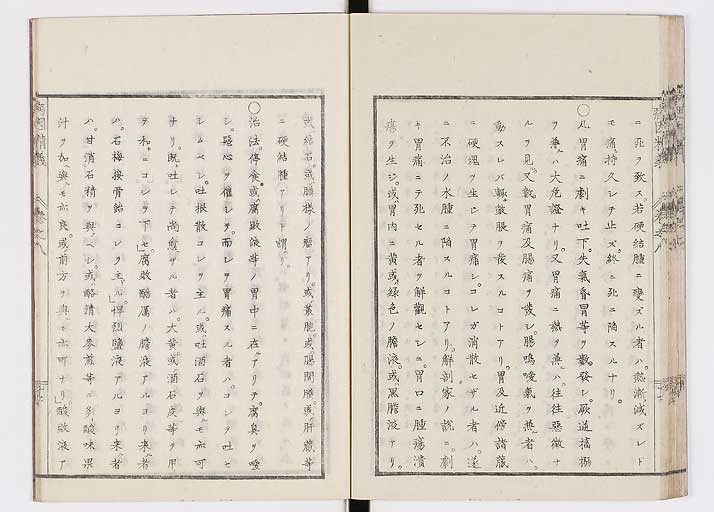 ニ死ヲ致ス。若硬結腫ニ變ズル者ハ。熱漸減ズレド
モ痛。持久シテ止ズ。終ニ死ニ陥スルナリ。
○凡胃痛ニ劇キ吐下。失氣昏冒等ヲ數發シ。厥逆搐搦
ヲ兼ハ大危證ナリ。又胃痛ニ熱ヲ兼ハ。往往惡徴ナ
ルヲ見又數胃痛及腸痛ヲ發シ。腸鳴噯氣ヲ兼者ハ。
動スレバ輙鼓脹ヲ後スルコトアリ。胃及近傍諸藏
ニ硬腫ヲ生シテ胃痛シ。コレガ消散セザル者ハ。遂
ニ不治ノ水腫ニ陥スルコトアリ。解剖家ノ說ニ。劇
キ胃痛ニテ死セル者ヲ解觀セシニ。胃口ニ腫瘍潰
瘍ヲ生ジ。或胃内ニ黄或緑色ノ膽液。或黒膽液アリ。
或結石。或膜樣ノ瘤アリ。或蓄胞。或腸間膜。或肝藏等
ニ硬結腫アリト謂リ。
○治法。停食。或腐敗液等ノ胃中ニ在アリテ。腐臭ヲ噫
シ。惡心ヲ催シテ。而シテ胃痛スル者ハ。コレヲ吐セ
シムベシ。吐根散コレヲ主ル。或吐酒石ヲ與モ亦可
ナリ。既吐シテ尚愈ザル者ハ。大黄或酒石皮等ヲ用
ヲ和ニコレヲ下セ。腐敗酷厲ノ膽液アルヨリ來者
ハ。石梅接骨飴コレヲ主ル。悍烈鹽液アルヨリ來者
ハ。甘消石精ヲ與ベシ。或酪清大麥煎等ニ多酸味果
汁ヲ加與モ亦良。或前方ヲ與モ亦可ナリ。酸敗液ア